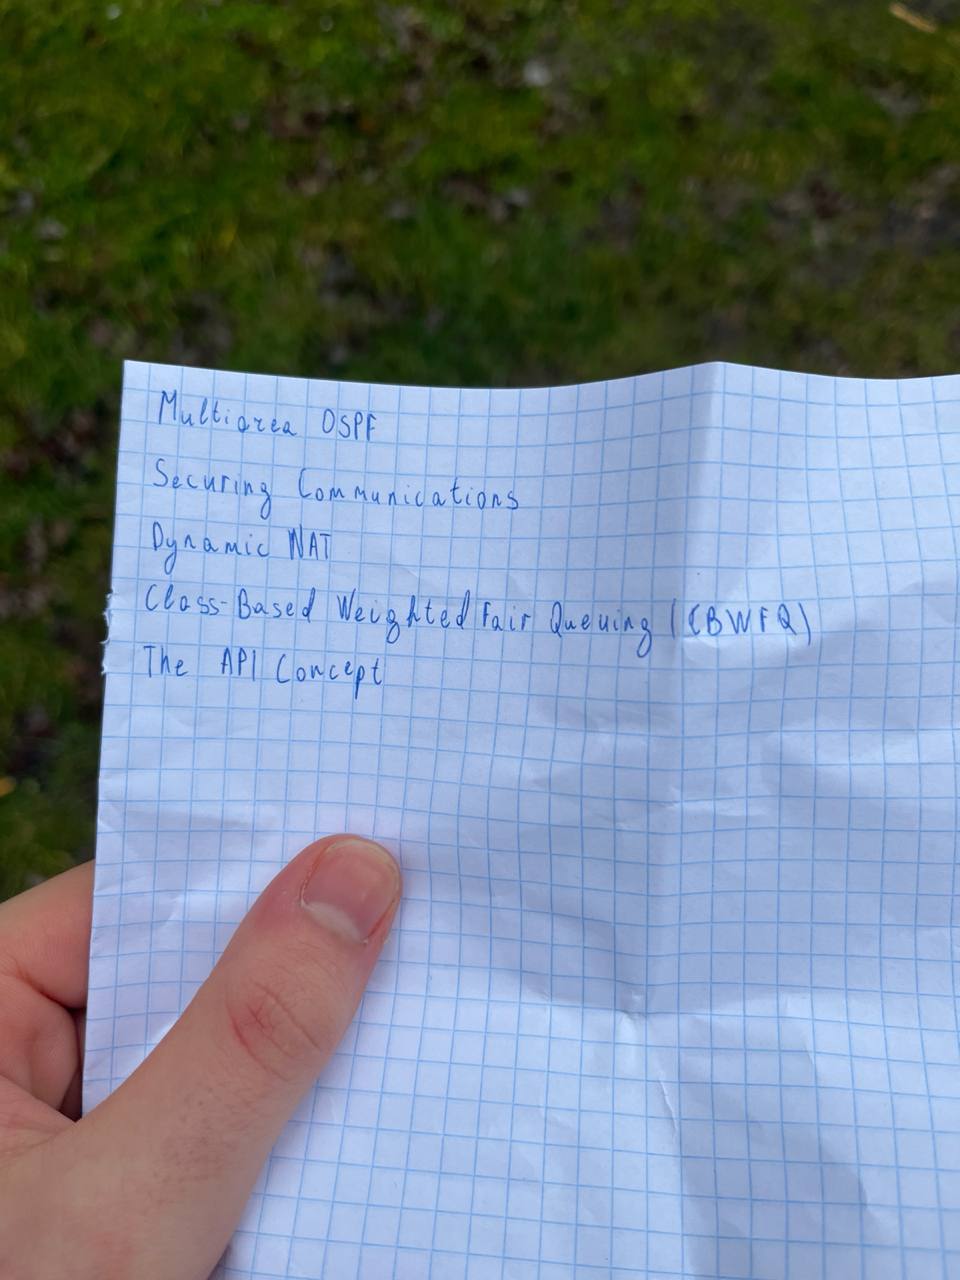 Multiarea OSPF
Securing Communications
Dynamic NAT
Class-Based Weighted Fair Queuing (CBWFQ)
The API Concept